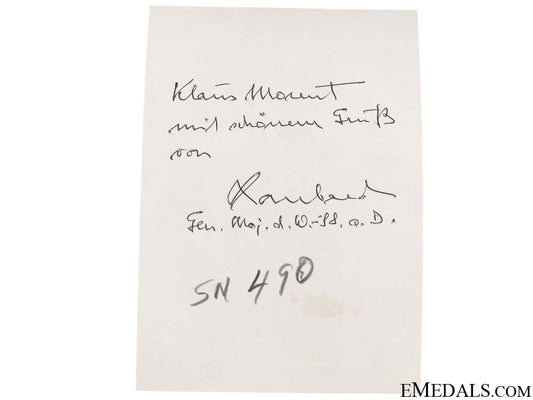 Klaus Morent
mit schönem Gruß
von
Gen. Maj. d. W.-SS. a. D.
SN 490
EMEDALS.COM